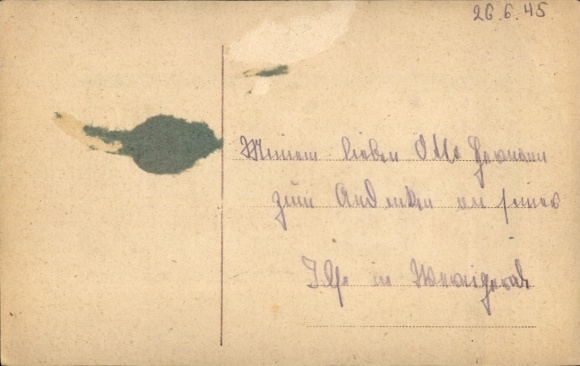 26.6.45
Meinem lieben Otto Hermann
zum Andenken an seine
Ilse in Wernigerode